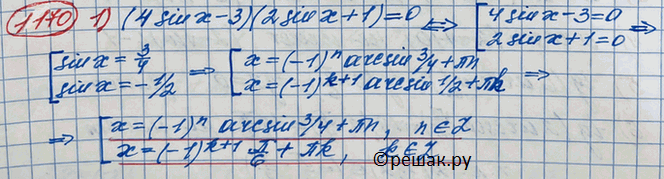 1170 1) (4 sin x - 3)(2 sin x + 1) = 0 <=> [4 sin x - 3 = 0 =>
2 sin x + 1 = 0
[sin x = 3/4 => [x = (-1)^n arcsin 3/4 + πn
sin x = -1/2 x = (-1)^{k+1} arcsin 1/2 + πk =>
=> [x = (-1)^n arcsin 3/4 + πn, n ∈ Z
x = (-1)^{k+1} π/6 + πk, k ∈ Z
©решак.ру